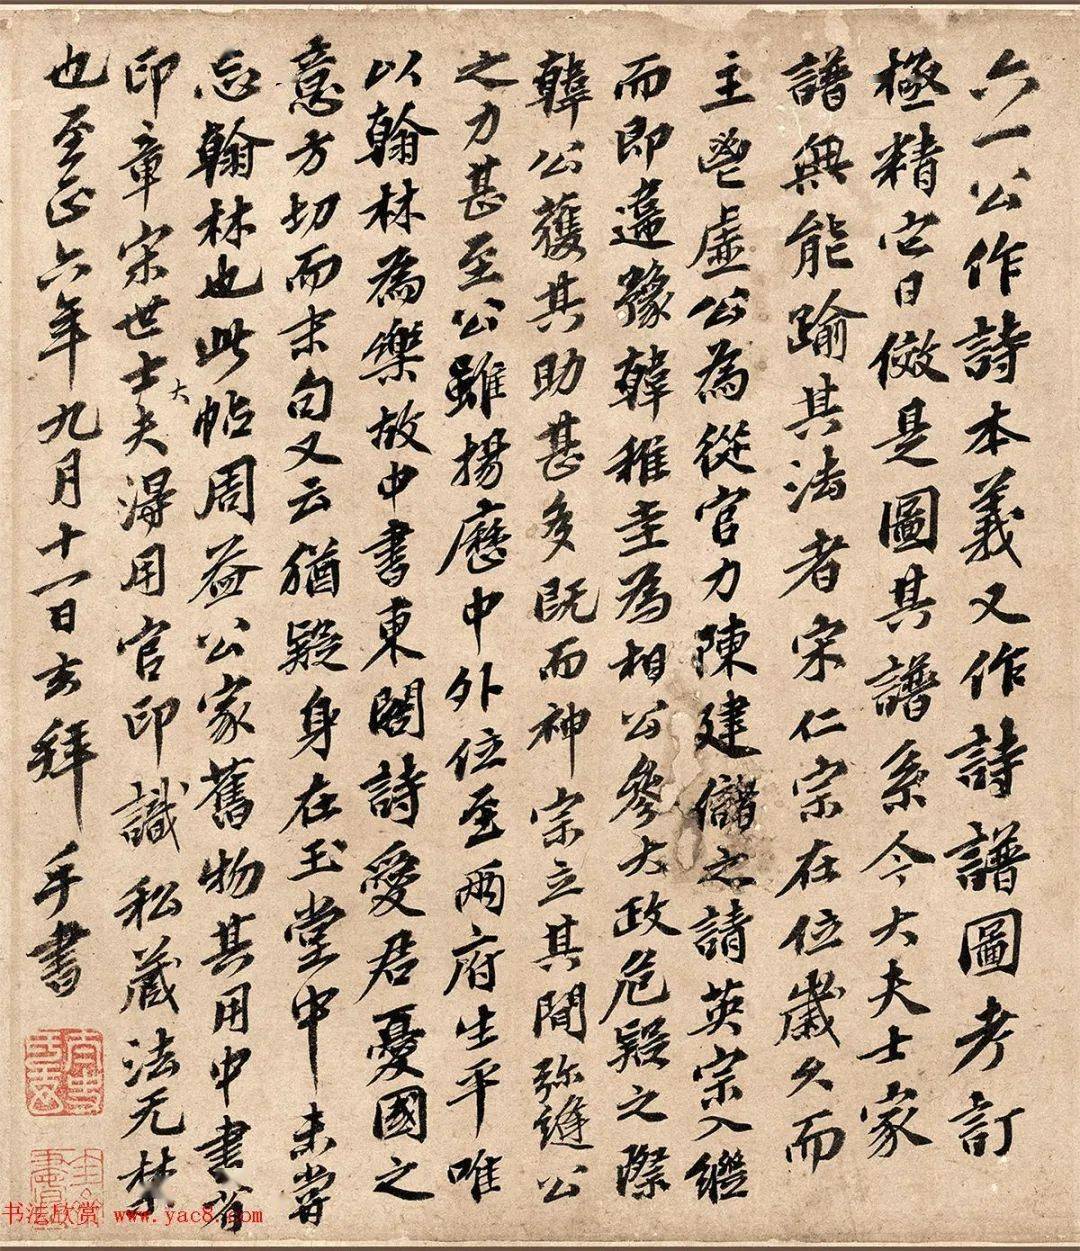 六一公作詩本義又作詩譜圖考訂
極精它日倣是圖其譜系今大夫士家
譜無能踰其法者宋仁宗在位歲久而
主鬯虛公為從官力陳建儲之請英宗入繼
而即違豫韓稚圭為相公參大政危疑之際
韓公獲其助甚多既而神宗立其間弥縫公
之力甚至公雖揚歷中外位至兩府生平唯
以翰林為樂故中書東閣詩愛君憂國之
意方切而末句又云猶疑身在玉堂中未嘗
忘翰林也此帖周益公家舊物其用中書省
印章宋世士大夫得用官印識私藏法无禁
也至正六年九月十一日玄拜手書
书法欣赏 www.yac8.com